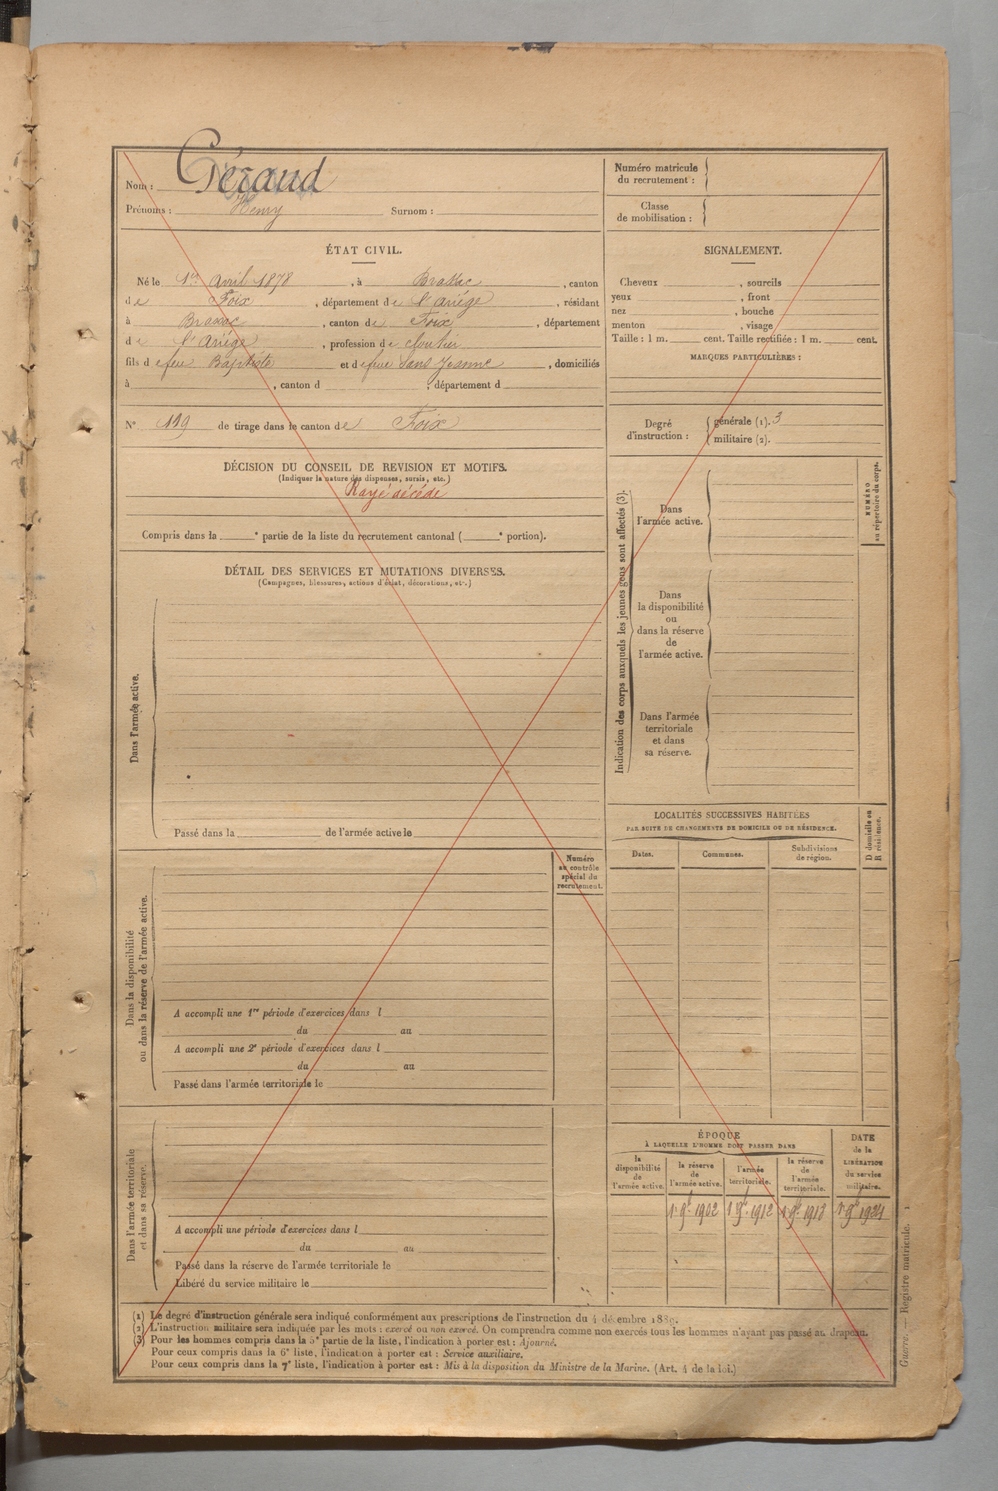 Nom : Géraud
Prénoms : Henry Surnom :
ÉTAT CIVIL.
Né le 1er Avril 1878, à Brassac, canton
de Foix, département de l'Ariège, résidant
à Brassac, canton de Foix, département
de l'Ariège, profession de cloutier
fils de feu Baptiste et de feue Sans Jeanne, domiciliés
à , canton d ; département d
N° 119 de tirage dans le canton de Foix
DÉCISION DU CONSEIL DE REVISION ET MOTIFS.
(Indiquer la nature des dispenses, sursis, etc.)
Rayé décédé
Compris dans la e partie de la liste du recrutement cantonal ( e portion).
DÉTAIL DES SERVICES ET MUTATIONS DIVERSES.
(Campagnes, blessures, actions d'éclat, décorations, etc.)
Dans l'armée active.
Passé dans la de l'armée active le
Numéro
au contrôle
spécial du
recrutement.
Dans la disponibilité
ou dans la réserve de l'armée active.
A accompli une 1re période d'exercices dans l
du au
A accompli une 2e période d'exercices dans l
du au
Passé dans l'armée territoriale le
Dans l'armée territoriale
et dans sa réserve.
A accompli une période d'exercices dans l
du au
Passé dans la réserve de l'armée territoriale le
Libéré du service militaire le
Numéro matricule
du recrutement :
Classe
de mobilisation :
SIGNALEMENT.
Cheveux , sourcils
yeux , front
nez , bouche
menton , visage
Taille : 1 m. cent. Taille rectifiée : 1 m. cent.
MARQUES PARTICULIÈRES :
Degré
d'instruction :
générale (1). 3
militaire (2).
Indication des corps auxquels les jeunes gens sont affectés (3).
NUMÉRO
au répertoire du corps.
Dans
l'armée active.
Dans
la disponibilité
ou
dans la réserve
de
l'armée active.
Dans l'armée
territoriale
et dans
sa réserve.
LOCALITÉS SUCCESSIVES HABITÉES
PAR SUITE DE CHANGEMENTS DE DOMICILE OU DE RÉSIDENCE.
Dates. Communes. Subdivisions
de région.
D domicile ou
R résidence.
ÉPOQUE
À LAQUELLE L'HOMME DOIT PASSER DANS
la
disponibilité
de
l'armée active.
la réserve
de
l'armée active.
l'armée
territoriale.
la réserve
de
l'armée
territoriale.
DATE
de la
LIBÉRATION
du service
militaire.
1 9bre 1902 1 9bre 1912 1 9bre 1918 1 9bre 1924
(1) Le degré d'instruction générale sera indiqué conformément aux prescriptions de l'instruction du 4 décembre 1889.
(2) L'instruction militaire sera indiquée par les mots : exercé ou non exercé. On comprendra comme non exercés tous les hommes n'ayant pas passé au drapeau.
(3) Pour les hommes compris dans la 5e partie de la liste, l'indication à porter est : Ajourné.
Pour ceux compris dans la 6e liste, l'indication à porter est : Service auxiliaire.
Pour ceux compris dans la 7e liste, l'indication à porter est : Mis à la disposition du Ministre de la Marine. (Art. 4 de la loi.)
Guerre. — Registre matricule. 1